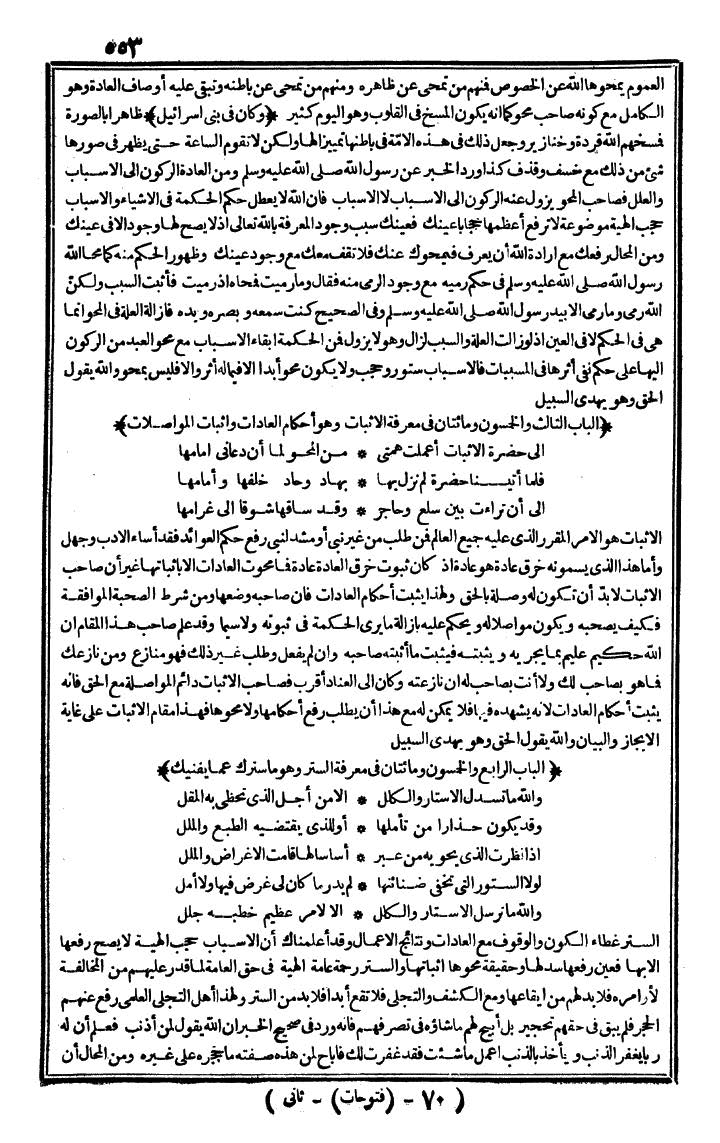 ٥٥٣
العموم يمحوها الله عن الخصوص فنهم من تمحى عن ظاهره ومنهم من تمحى عن باطنه وتبقى عليه أوصاف العادة وهو
الكامل مع كونه صاحب محو كما انه يكون المسخ فى القلوب وهو اليوم كثير ﴿وكان فى بنى اسرائيل﴾ ظاهرا بالصورة
فسخهم الله قردة وخنازير وجعل ذلك فى هذه الامّة فى باطنها تمييزا لها ولكن لا تقوم الساعة حتى يظهر فى صورها
شئ من ذلك مع خسف وقذف كذا ورد الخبر عن رسول الله صلى الله عليه وسلم ومن العادة الركون الى الاسباب
والعلل فصاحب المحو يزول عنه الركون الى الاسباب لا الاسباب فان الله لا يعطل حكم الحكمة فى الاشياء والاسباب
حجب الهية موضوعة لا ترفع أعظمها حجابا عينك فعينك سبب وجود المعرفة بالله تعالى اذ لا يصح لها وجود الا فى عينك
ومن المحال رفعك مع ارادة الله أن يعرف فيمحوك عنك فلا تقف معك مع وجود عينك وظهور الحكم منه كما محا الله
رسول الله صلى الله عليه وسلم فى حكم رميه مع وجود الرمى منه فقال وما رميت فمحاه اذ رميت فأثبت السبب ولكنّ
الله رمى وما رمى الا بيد رسول الله صلى الله عليه وسلم وفى الصحيح كنت سمعه وبصره ويده فازالة العلة فى المحو انما
هى فى الحكم لا فى العين اذ لو زالت العلة والسبب لزال وهو لا يزول فمن الحكمة ابقاء الاسباب مع محو العبد من الركون
اليها على حكم نفى أثرها فى المسببات فالاسباب ستور وحجب ولا يكون محو أبدا الا فيما له أثر والا فليس بمحو والله يقول
الحق وهو يهدى السبيل
﴿الباب الثالث والخمسون ومائتان فى معرفة الاثبات وهو أحكام العادات واثبات المواصلات﴾
الى حضرة الاثبات أعملت همتى * من المحو لما أن دعانى امامها
فلما أتينا حضرة لم نزل بها * بهاد وحاد خلفها وأمامها
الى أن تراءت بين سلع وحاجر * وقد ساقها شوقا الى غرامها
الاثبات هو الامر المقرر الذى عليه جميع العالم فمن طلب من غير نبى أو مشد لنبى رفع حكم العوائد فقد أساء الادب وجهل
وأما هذا الذى يسمونه خرق عادة هو عادة اذ كان ثبوت خرق العادة عادة فما محوت العادات الا باثباتها غير أن صاحب
الاثبات لا بدّ أن تكون له وصلة بالحق ولهذا يثبت أحكام العادات فان صاحبه وضعها ومن شرط الصحبة الموافقة
فكيف يصحبه ويكون مواصلا له ويحكم عليه بازالة ما يرى الحكمة فى ثبوته ولا سيما وقد علم صاحب هذا المقام ان
الله حكيم عليم بما يجريه ويثبته فيثبت ما أثبته صاحبه وان لم يفعل وطلب غير ذلك فهو منازع ومن نازعك
فما هو بصاحب لك ولا أنت بصاحب له ان نازعته وكان الى العناد أقرب فصاحب الاثبات دائم المواصلة مع الحق فانه
يثبت أحكام العادات لانه يشهده فيها فلا يمكن له مع هذا أن يطلب رفع أحكامها ولا محوها فهذا مقام الاثبات على غاية
الايجاز والبيان والله يقول الحق وهو يهدى السبيل
﴿الباب الرابع والخمسون ومائتان فى معرفة الستر وهو ما سترك عما يفنيك﴾
والله ما تسدل الاستار والكلل * الا من أجل الذى تحظى به المقل
وقد يكون حذارا من تأملها * أو للذى يقتضيه الطبع والملل
اذا نظرت الذى يحويه من عبر * أساسا لها قامت الاغراض والملل
لولا الستور التى تخفى ضنائنها * لم يدر ما كان لى غرض فيها ولا أمل
والله ما نرسل الاستار والكلل * الا لامر عظيم خطبه جلل
الستر غطاء الكون والوقوف مع العادات ونتائج الاعمال وقد أعلمناك أن الاسباب حجب الهية لا يصح رفعها
الا بها فعين رفعها سدلها وحقيقة محوها اثباتها والستر رحمة عامة الهية فى حق العامة لما قدر عليهم من المخالفة
لأوامره فلا بد لهم من ايقاعها ومع الكشف والتجلى فلا تقع أبدا فلا بد من الستر ولهذا أهل التجلى العلمى رفع عنهم
الحجر فلم يبق فى حقهم تحجير بل أبيح لهم ما شاؤه فى تصرفهم فانه ورد فى صحيح الخبر ان الله يقول لمن أذنب فعلم أن له
ربا يغفر الذنب ويأخذ بالذنب اعمل ما شئت فقد غفرت لك فاباح لمن هذه صفته ما حجره على غيره ومن المحال أن
( ٧٠ - (فتوحات) - ثانى )